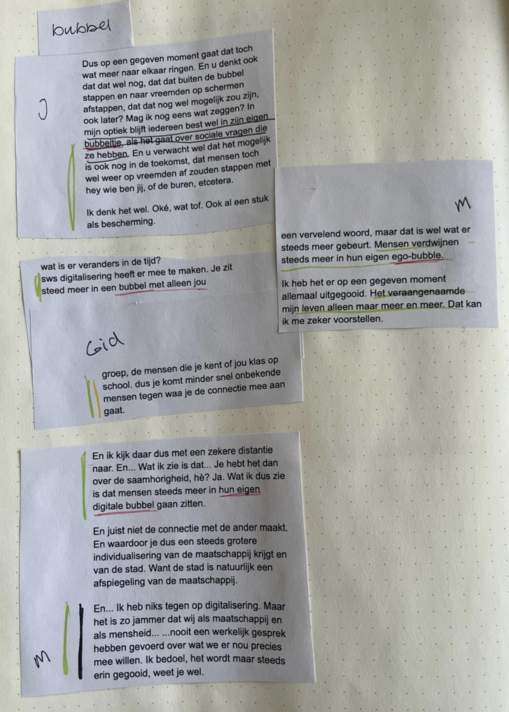 bubbel
J
Dus op een gegeven moment gaat dat toch
wat meer naar elkaar ringen. En u denkt ook
dat dat wel nog, dat dat buiten de bubbel
stappen en naar vreemden op schermen
afstappen, dat dat nog wel mogelijk zou zijn,
ook later? Mag ik nog eens wat zeggen? In
mijn optiek blijft iedereen best wel in zijn eigen
bubbeltje, als het gaat over sociale vragen die
ze hebben. En u verwacht wel dat het mogelijk
is ook nog in de toekomst, dat mensen toch
wel weer op vreemden af zouden stappen met
hey wie ben jij, of de buren, etcetera.
Ik denk het wel. Oké, wat tof. Ook al een stuk
als bescherming.
M
een vervelend woord, maar dat is wel wat er
steeds meer gebeurt. Mensen verdwijnen
steeds meer in hun eigen ego-bubble.
Ik heb het er op een gegeven moment
allemaal uitgegooid. Het veraangenaamde
mijn leven alleen maar meer en meer. Dat kan
ik me zeker voorstellen.
wat is er veranders in de tijd?
sws digitalisering heeft er mee te maken. Je zit
steed meer in een bubbel met alleen jou
Gid
groep, de mensen die je kent of jou klas op
school. dus je komt minder snel onbekende
mensen tegen waa je de connectie mee aan
gaat.
En ik kijk daar dus met een zekere distantie
naar. En... Wat ik zie is dat... Je hebt het dan
over de saamhorigheid, hè? Ja. Wat ik dus zie
is dat mensen steeds meer in hun eigen
digitale bubbel gaan zitten.
En juist niet de connectie met de ander maakt.
En waardoor je dus een steeds grotere
individualisering van de maatschappij krijgt en
van de stad. Want de stad is natuurlijk een
afspiegeling van de maatschappij.
En... Ik heb niks tegen op digitalisering. Maar
het is zo jammer dat wij als maatschappij en
als mensheid... ...nooit een werkelijk gesprek
hebben gevoerd over wat we er nou precies
mee willen. Ik bedoel, het wordt maar steeds
erin gegooid, weet je wel.
M